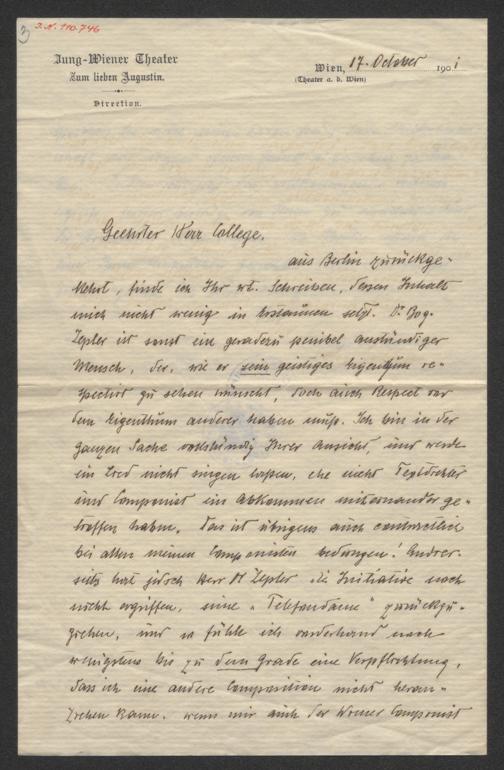 3
J.N. 110.746
Jung-Wiener Theater
Zum lieben Augustin.
Direction.
Wien, 17. October 1901
(Theater a. d. Wien)
Geehrter Herr College.
aus Berlin zurückge-
kehrt, finde ich Ihr wt. Schreiben, dessen Inhalt
mich nicht wenig in Erstaunen setzt. Dr Bog.
Zepler ist sonst ein geradezu penibel anständiger
Mensch, der, wie er sein geistiges Eigenthum re-
spectirt zu sehen wünscht, doch auch Respect vor
dem Eigenthum anderer haben muß. Ich bin in der
ganzen Sache vollständig Ihrer Ansicht, und werde
ein Lied nicht singen lassen, ehe nicht Textdichter
und Componist ein Abkommen miteinander ge-
troffen haben. Das ist übrigens auch contractlich
bei allen meinen Componisten bedungen! Andrer-
seits hat jedoch Herr Zepler die Initiative noch
nicht ergriffen, seine „Telefondame" zurückzu-
ziehen, und so fühle ich vorderhand noch
wenigstens bis zu dem Grade eine Verpflichtung,
dass ich eine andere Composition nicht heran-
ziehen kann. wenn mir auch der Wiener Componist